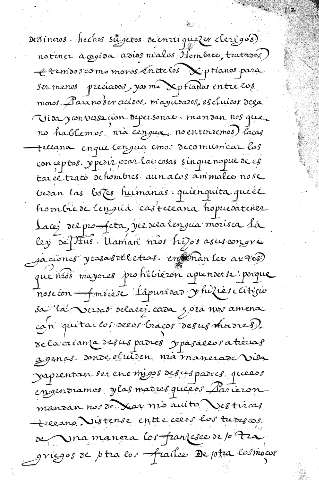 de dineros. hechos sugetos de enriquezer clerigos
no tener acogida a dios ni a los hombres, tratados
tenidos como moros entre los Xptianos para
ser menos preciados, y como Xptianos entre los
moros. Para no ser creidos, ni ayudados, escluidos de la
vida y conversaçion de personas. mandan nos que
no hablemos nra lengua, no entendemos la cas
tellana. en que lengua emos de comunicar los
conçeptos. y pedir o dar las cosas sin que no puede es
tar el trato de hombres. aun a los animales no se
vedan las bozes humanas. quien quita que el
hombre de lengua castellana no pueda tener
la ley del profeta, y el de la lengua morisca la
ley de Jesus. llaman nros hijos a sus congre
gaçiones y casas de letras. enseñan les artes
que nros mayores prohibieron aprenderse. porque
no se confundiese la puridad y se hiziese litigio
sa la verdad de la ley. cada ora nos amena
çan quitarlos de los braços de sus madres
de la criança de sus padres. y pasarlos a tierras
agenas. donde olviden nra manera de vida
y aprendan ser enemigos de sus padres que los
engendramos. y las madres que los parieron
mandan nos dexar nro avito. y vestir cas
tellano. vistense entre ellos los tudescos
de una manera los françeses de otra
griegos de otra los frailes de otra los moços